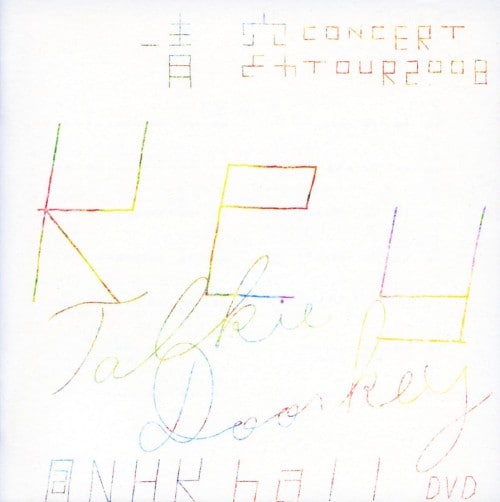 一青窈 CONCERT
TOUR2008
KEY
Talkie
Doorkey
@NHK hall DVD